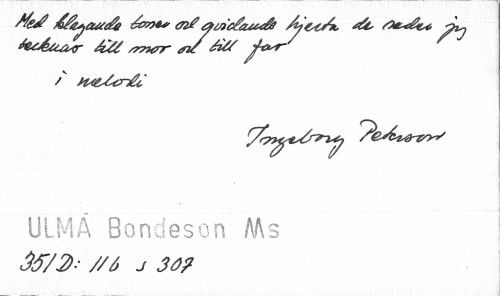 Med klagande toner och qvidande hjerta de rader jag
tecknar till mor och till far
i melodi
Ingeborg Peterson
ULMA Bondeson Ms
351D: 116 s 307